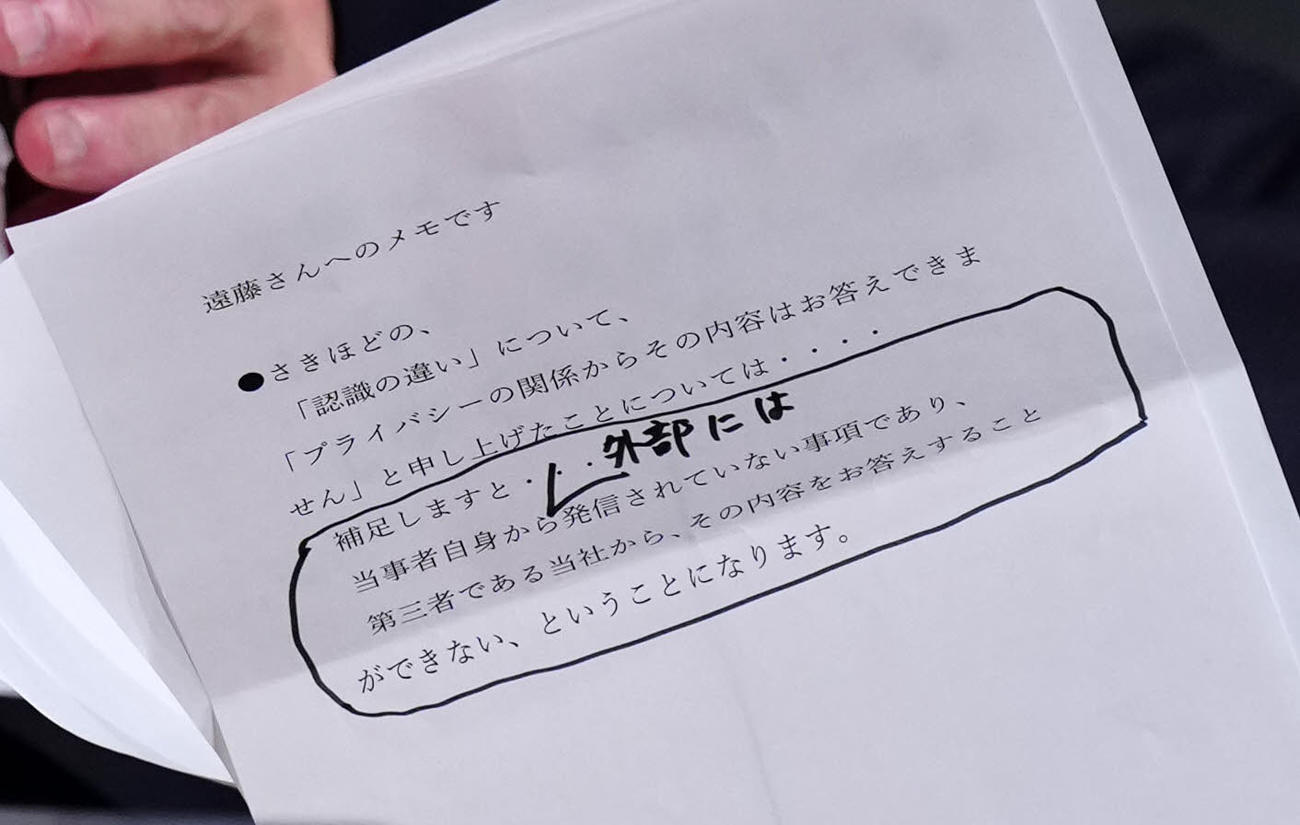 遠藤さんへのメモです
●さきほどの、
「認識の違い」について、
「プライバシーの関係からその内容はお答えできま
せん」と申し上げたことについては・・・・
補足しますと・・・
外部には
当事者自身から発信されていない事項であり、
第三者である当社から、その内容をお答えすること
ができない、ということになります。